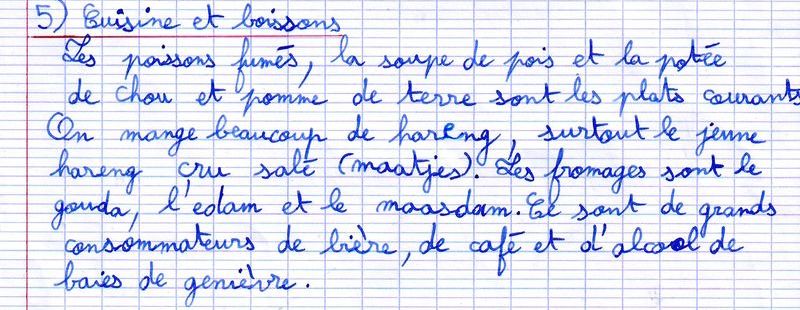 5) Cuisine et boissons
Les poissons fumés, la soupe de pois et la potée
de chou et pomme de terre sont les plats courants
On mange beaucoup de hareng, surtout le jeune
hareng cru salé (maatjes). Les fromages sont le
gouda, l'edam et le maasdam. Ce sont de grands
consommateurs de bière, de café et d'alcool de
baies de genièvre.